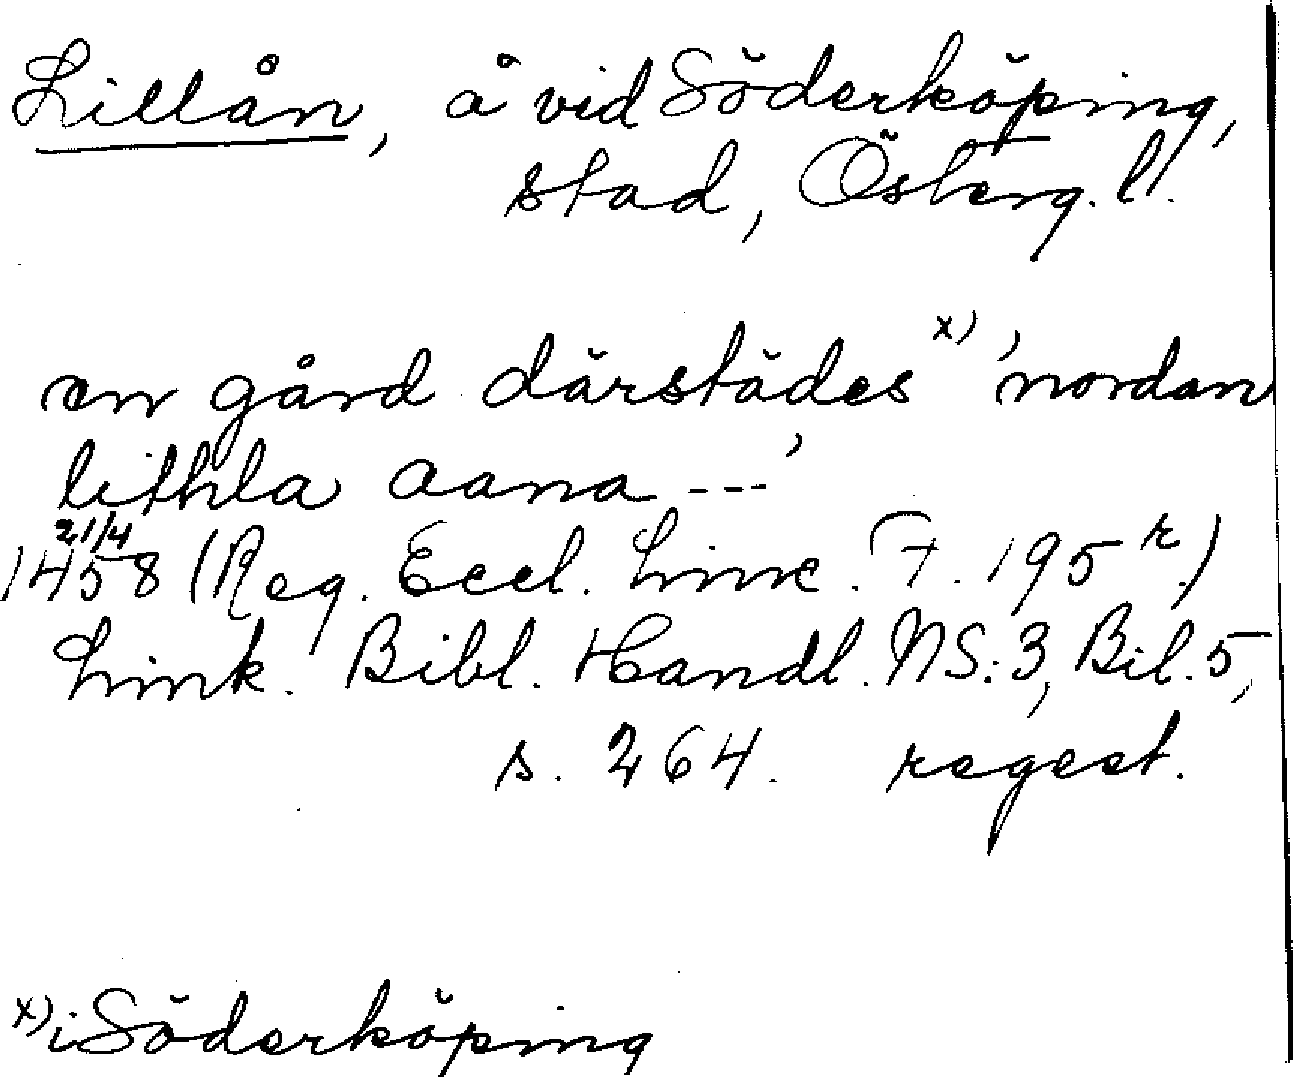 Lillån, å vid Söderköping,
stad, Österg. l.
en gård därstädes x) 'nordan
lithla aana ---'
21/4
1458 (Reg. Eccl. Linc. F. 195 r.)
Link. Bibl. Handl. NS: 3, Bil. 5,
s. 264. regest.
x) i Söderköping